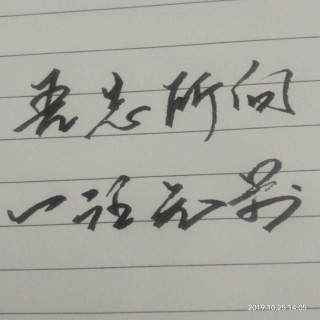 吾志所向
一往无前
2019.10.25 14:05